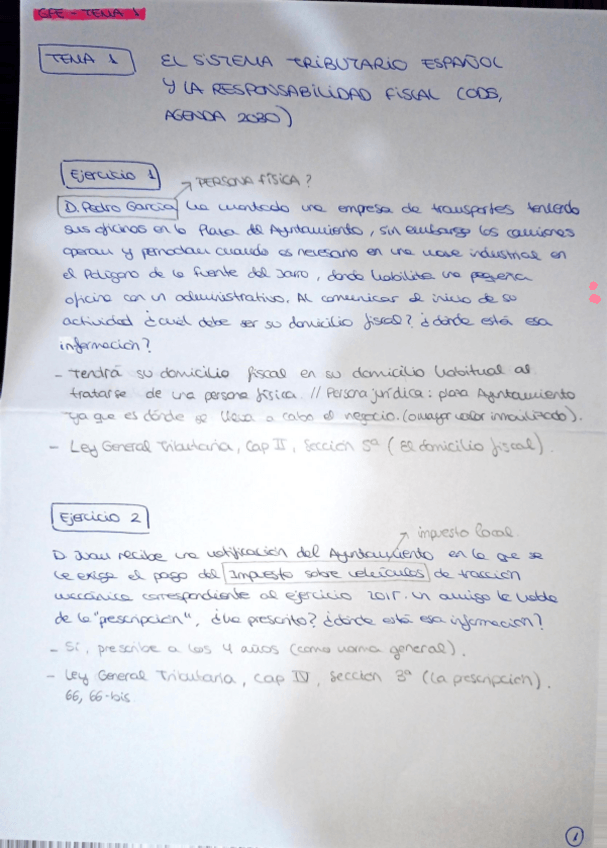 CFE - TEMA 1
TEMA 1
EL SISTEMA TRIBUTARIO ESPAÑOL
Y LA RESPONSABILIDAD FISCAL (ODS,
AGENDA 2030)
Ejercicio 1
PERSONA FÍSICA?
D. Pedro García ha montado una empresa de transportes teniendo
sus oficinas en la Plaza del Ayuntamiento, sin embargo los camiones
operan y pernoctan cuando es necesario en una nave industrial en
el Polígono de la Fuente del Jarro, donde habilita una pequeña
oficina con un administrativo. Al comunicar el inicio de su
actividad ¿cuál debe ser su domicilio fiscal? ¿dónde está esa
información?
- Tendrá su domicilio fiscal en su domicilio habitual al
tratarse de una persona física. // Persona jurídica: plaza Ayuntamiento
ya que es dónde se lleva a cabo el negocio. (o mayor valor inmovilizado).
- Ley General Tributaria, Cap II, Sección 5ª (El domicilio fiscal).
Ejercicio 2
impuesto local
D. Juan recibe una notificación del Ayuntamiento en la que se
le exige el pago del Impuesto sobre vehículos de tracción
mecánica correspondiente al ejercicio 2015. Un amigo le habla
de la "prescripción", ¿ha prescrito? ¿dónde está esa información?
- Sí, prescribe a los 4 años (como norma general).
- Ley General Tributaria, Cap IV, Sección 3ª (La prescripción).
66, 66-bis
1